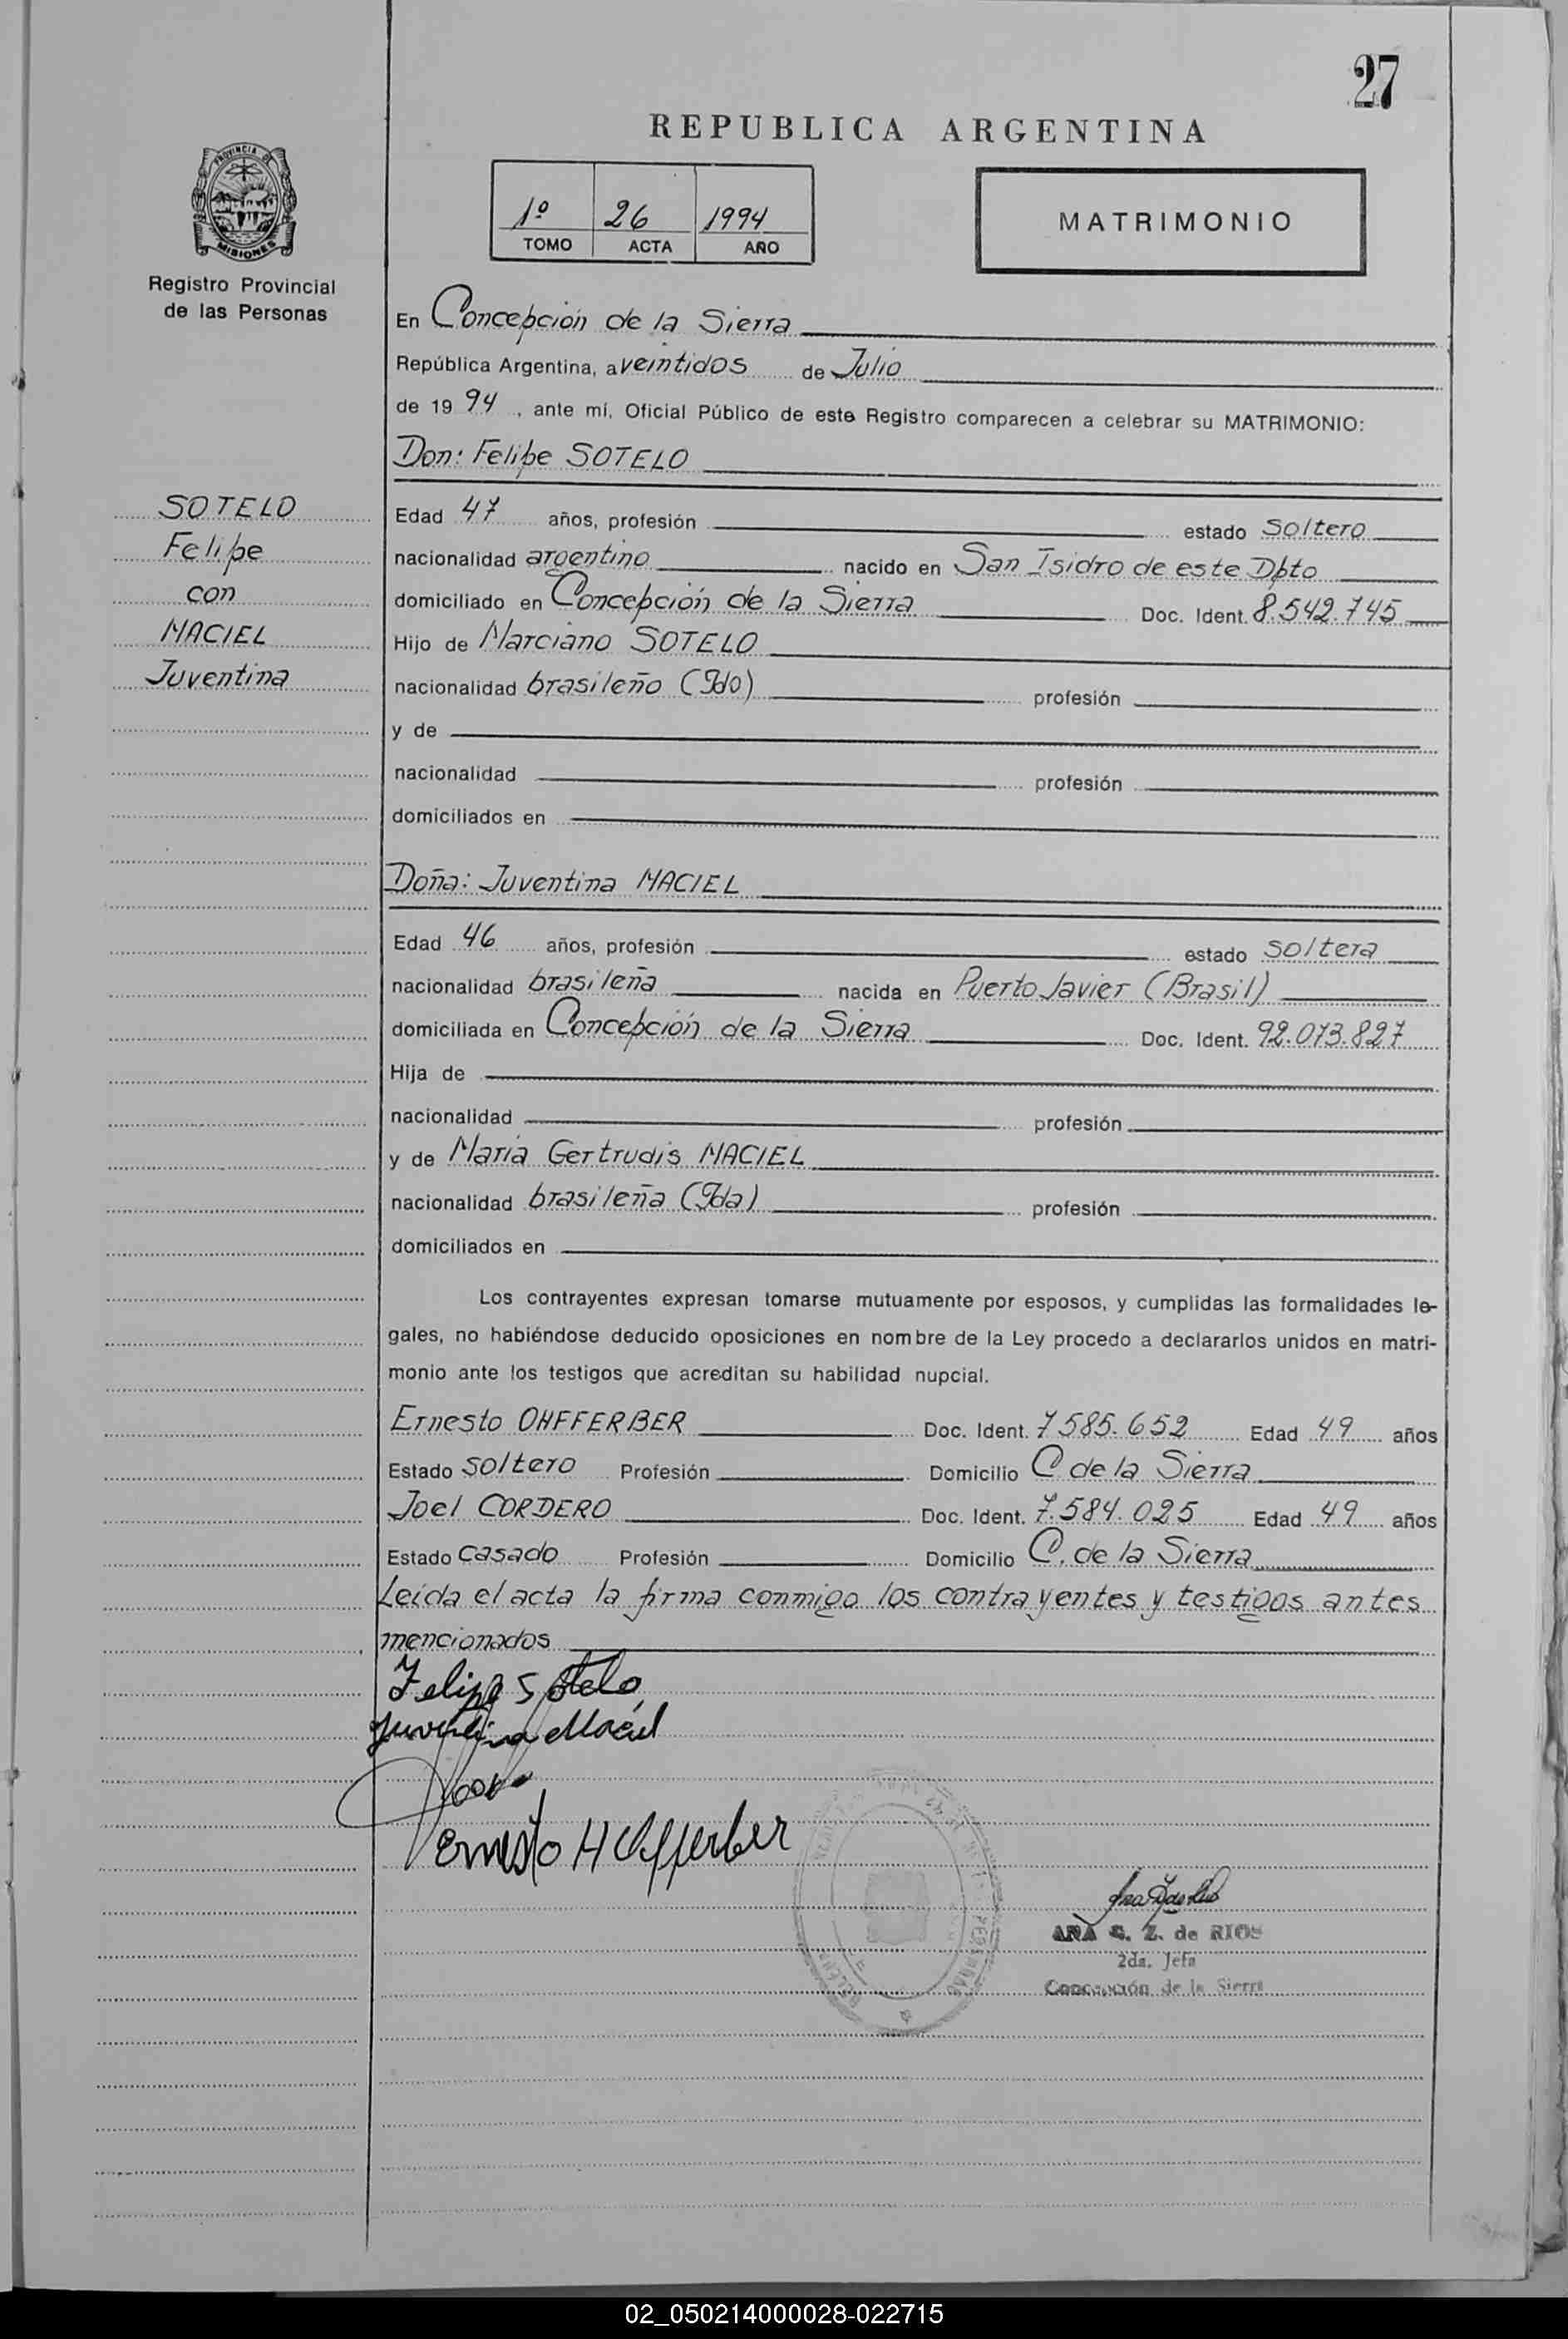 27
REPUBLICA ARGENTINA
PROVINCIA DE
MISIONES
Registro Provincial
de las Personas
1º 26 1994
TOMO ACTA AÑO
MATRIMONIO
En Concepción de la Sierra
República Argentina, a veintidos de Julio
de 19 94, ante mí, Oficial Público de este Registro comparecen a celebrar su MATRIMONIO:
Don: Felipe SOTELO
SOTELO
Felipe
con
MACIEL
Juventina
Edad 47 años, profesión estado soltero
nacionalidad argentino nacido en San Isidro de este Dpto
domiciliado en Concepción de la Sierra Doc. Ident. 8.542.745
Hijo de Marciano SOTELO
nacionalidad brasileño (Fdo) profesión
y de
nacionalidad profesión
domiciliados en
Doña: Juventina MACIEL
Edad 46 años, profesión estado soltera
nacionalidad brasileña nacida en Puerto Javier (Brasil)
domiciliada en Concepción de la Sierra Doc. Ident. 92.073.827
Hija de
nacionalidad profesión
y de María Gertrudis MACIEL
nacionalidad brasileña (Fda) profesión
domiciliados en
Los contrayentes expresan tomarse mutuamente por esposos, y cumplidas las formalidades le-
gales, no habiéndose deducido oposiciones en nombre de la Ley procedo a declararlos unidos en matri-
monio ante los testigos que acreditan su habilidad nupcial.
Ernesto OHFFERBER Doc. Ident. 7585.652 Edad 49 años
Estado soltero Profesión Domicilio C de la Sierra
Joel CORDERO Doc. Ident. 7.584.025 Edad 49 años
Estado casado Profesión Domicilio C. de la Sierra
Leída el acta la firma conmigo los contrayentes y testigos antes
mencionados
Felipe Sotelo
Juventina Maciel
Ernesto H Offerber
ANA G. Z. de RIOS
2da. Jefa
Concepción de la Sierra
02_050214000028-022715